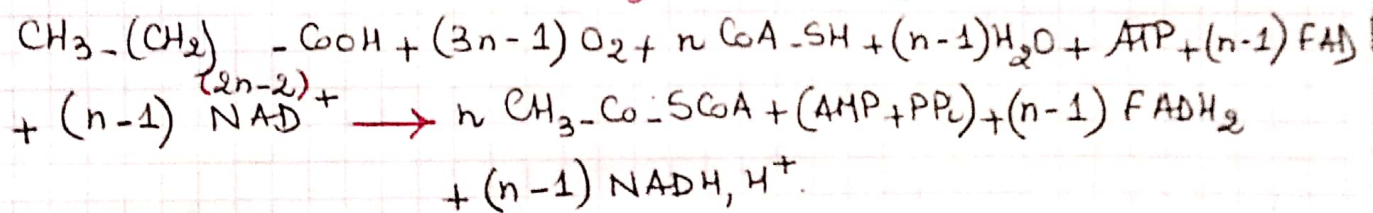 CH3-(CH2)(2n-2)-COOH + (3n-1) O2 + n CoA-SH + (n-1) H2O + ATP + (n-1) FAD
+ (n-1) NAD+ → n CH3-CO-SCoA + (AMP + PPi) + (n-1) FADH2
+ (n-1) NADH, H+.